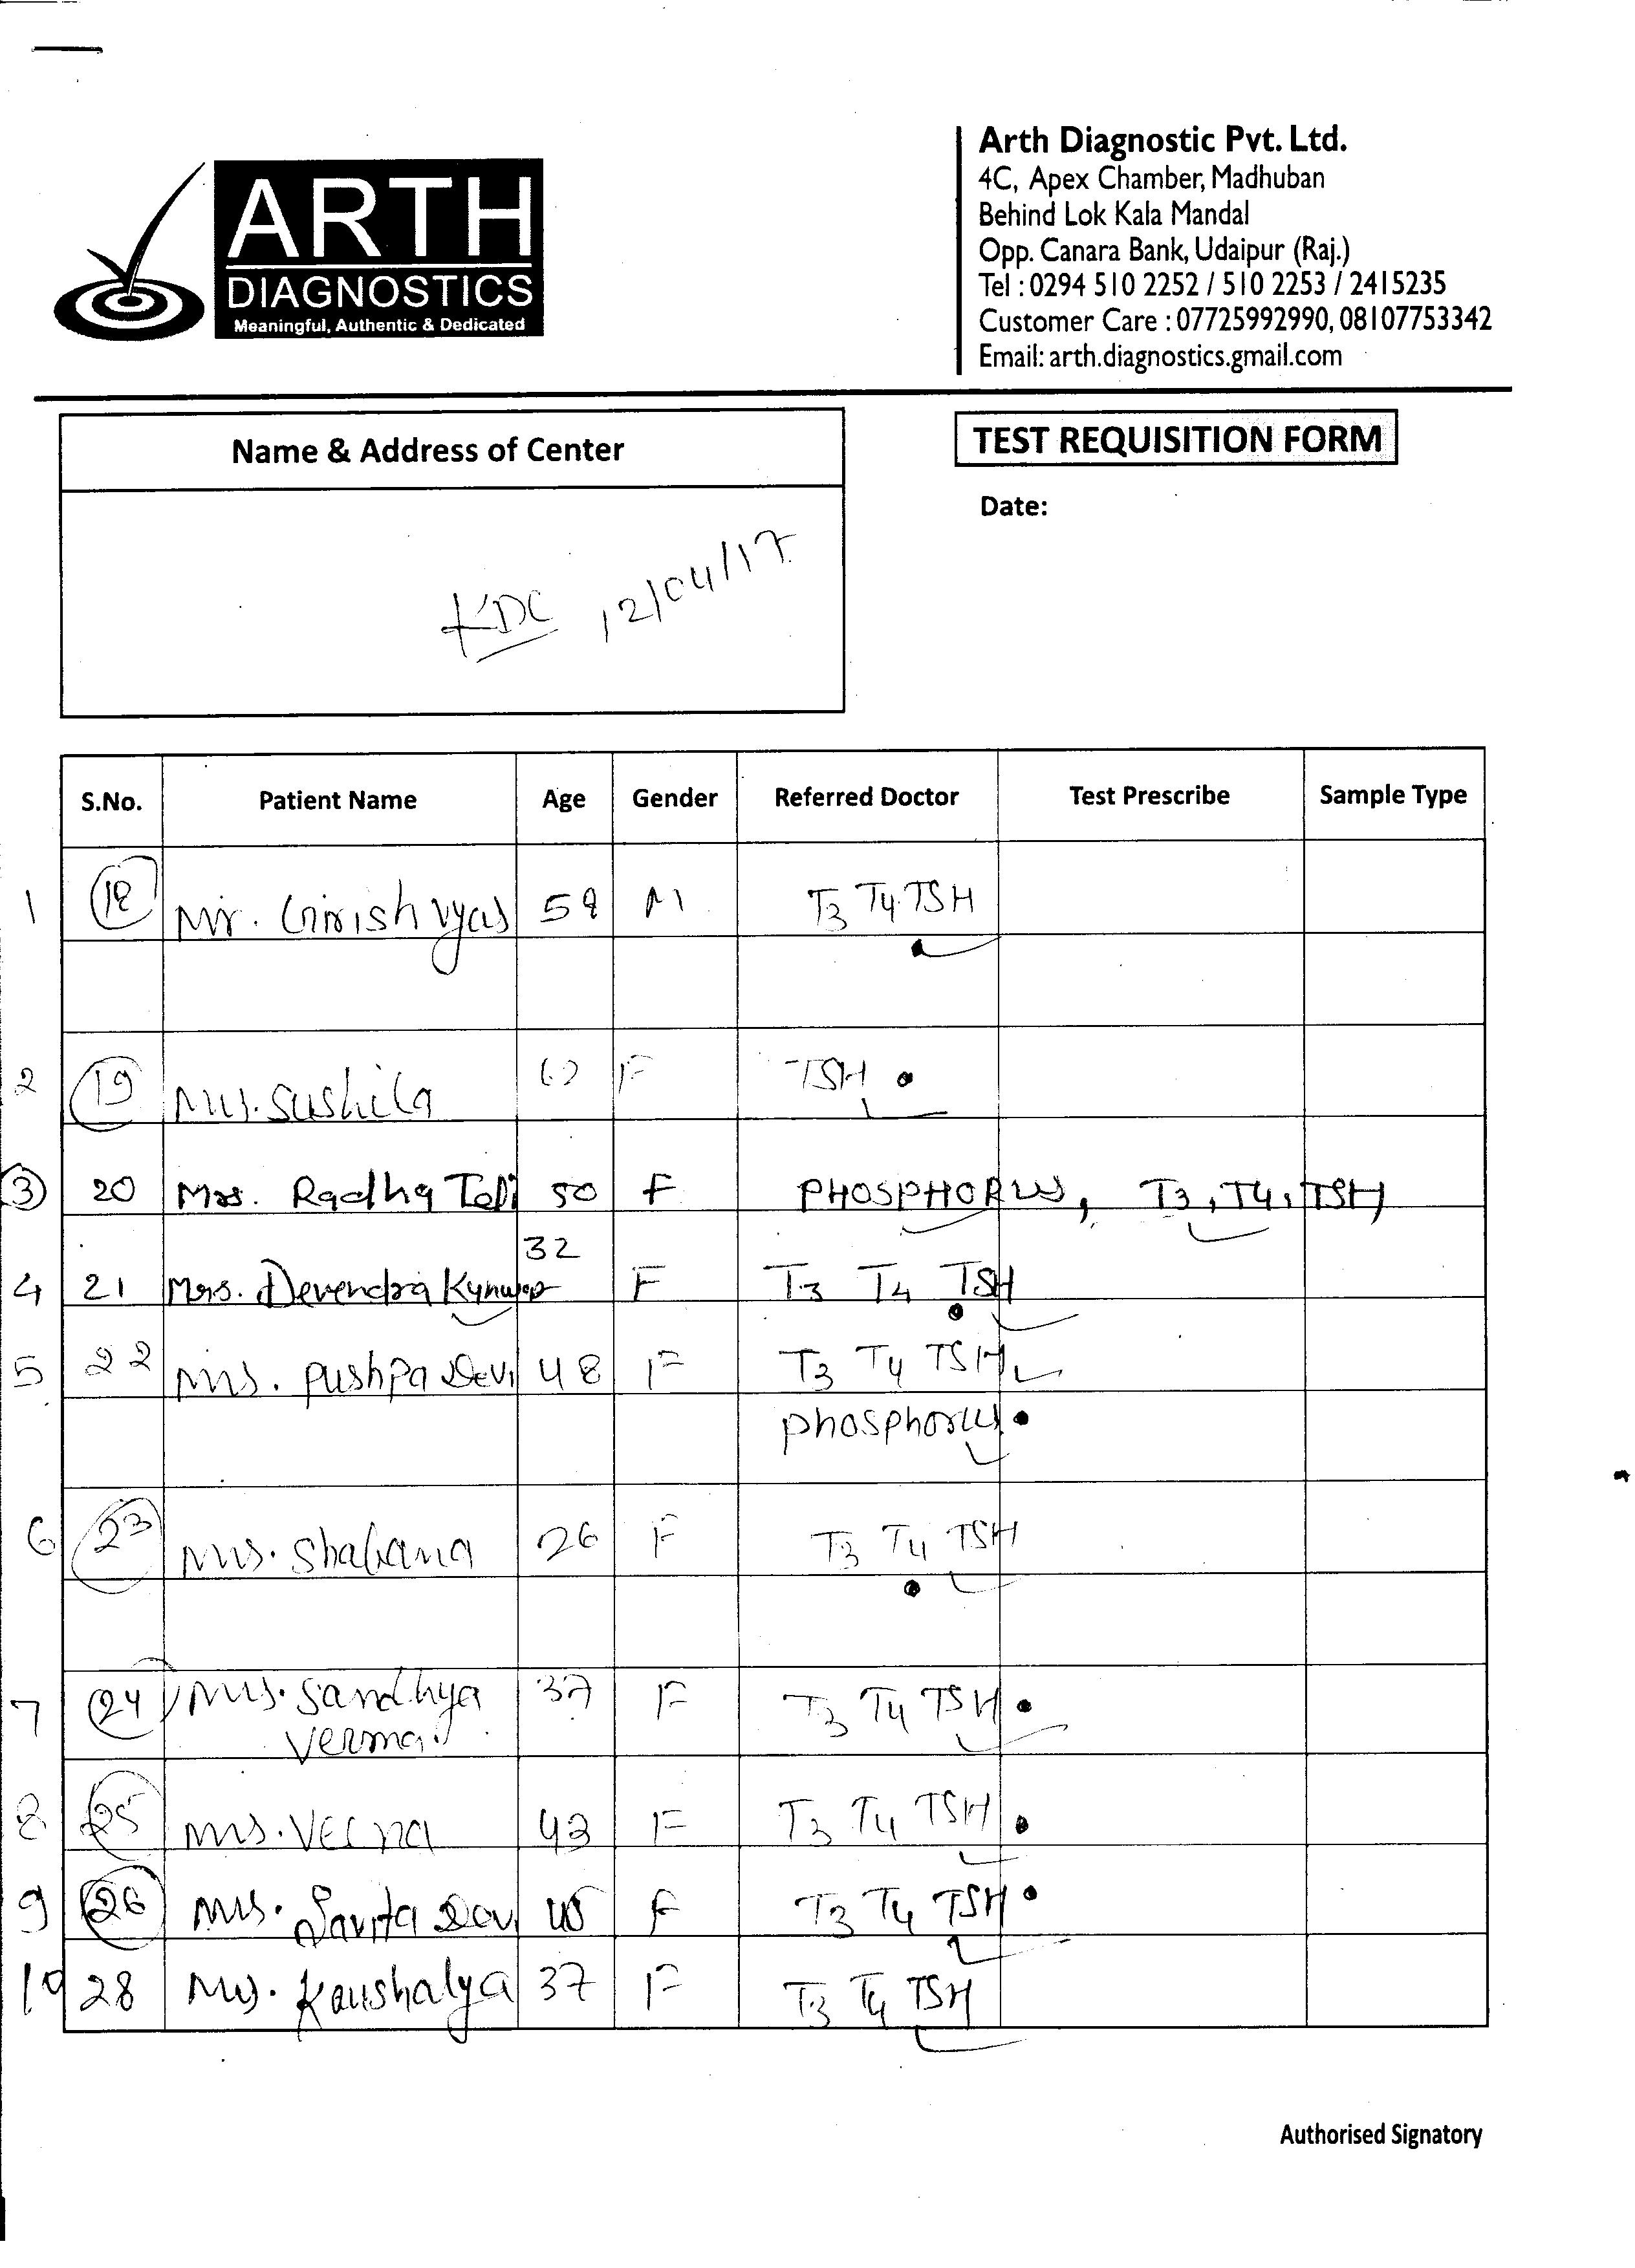 ARTH
DIAGNOSTICS
Meaningful, Authentic & Dedicated
Arth Diagnostic Pvt. Ltd.
4C, Apex Chamber, Madhuban
Behind Lok Kala Mandal
Opp. Canara Bank, Udaipur (Raj.)
Tel : 0294 510 2252 / 510 2253 / 2415235
Customer Care : 07725992990, 08107753342
Email: arth.diagnostics.gmail.com
Name & Address of Center
TEST REQUISITION FORM
Date:
KDC 12/04/17
S.No. Patient Name Age Gender Referred Doctor Test Prescribe Sample Type
1 18 Mr. Girish vyas M T3 T4 TSH
2 19 Mrs. Sushila F TSH
3 20 Mrs. Radha Teli 50 F PHOSPHORUS, T3, T4, TSH
4 21 Mrs. Devendra Kunwar 32 F T3 T4 TSH
5 22 Mrs. pushpa Devi 48 F T3 T4 TSH
phosphorus
6 23 Mrs. Shabana 26 F T3 T4 TSH
7 24 Mrs. Sandhya 37 F T3 T4 TSH
Verma
8 25 Mrs. Veena 43 F T3 T4 TSH
9 26 Mrs. Savita Devi F T3 T4 TSH
10 28 Mrs. Kaushalya 37 F T3 T4 TSH
Authorised Signatory